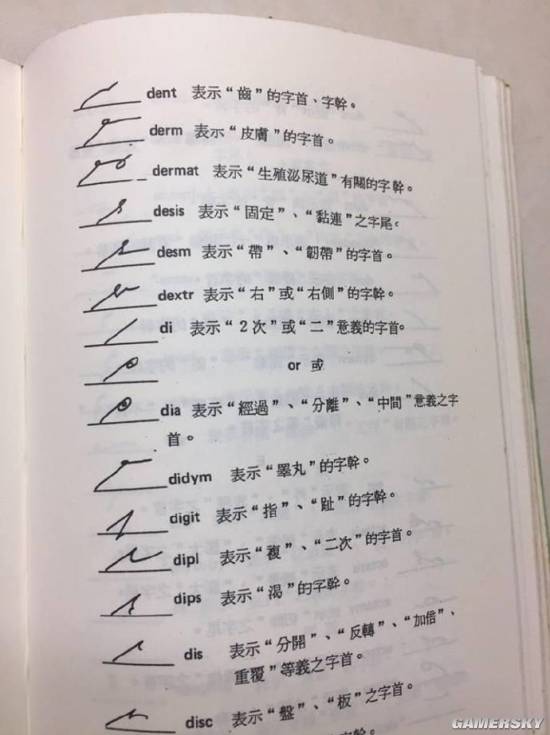 dent 表示“齒”的字首、字幹。
derm 表示“皮膚”的字首。
dermat 表示“生殖泌尿道”有關的字幹。
desis 表示“固定”、“黏連”之字尾。
desm 表示“帶”、“韌帶”的字首。
dextr 表示“右”或“右側”的字幹。
di 表示“2次”或“二”意義的字首。
or 或
dia 表示“經過”、“分離”、“中間”意義之字
首。
didym 表示“睪丸”的字幹。
digit 表示“指”、“趾”的字幹。
dipl 表示“複”、“二次”的字首。
dips 表示“渴”的字幹。
dis 表示“分開”、“反轉”、“加倍”、
重覆”等義之字首。
disc 表示“盤”、“板”之字首。
字幹。
GAMERSKY